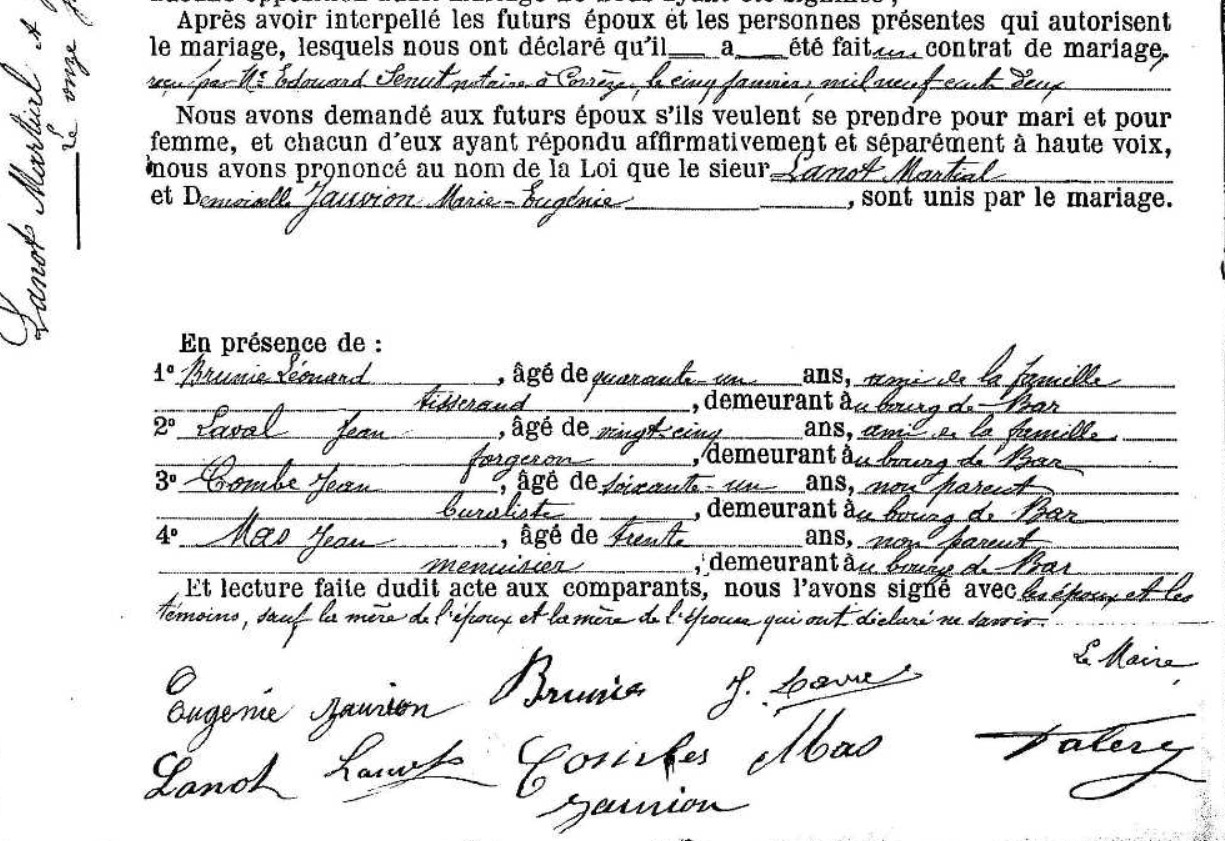 Après avoir interpellé les futurs époux et les personnes présentes qui autorisent
le mariage, lesquels nous ont déclaré qu'il a été fait un contrat de mariage,
reçu par Me Edouard Senut notaire à Corrèze, le cinq janvier, mil neuf cent deux
Nous avons demandé aux futurs époux s'ils veulent se prendre pour mari et pour
femme, et chacun d'eux ayant répondu affirmativement et séparément à haute voix,
nous avons prononcé au nom de la Loi que le sieur Lanot Martial
et Demoiselle Jauvion Marie-Eugénie, sont unis par le mariage.
Lanot Martial et
Le onze
En présence de :
1º Brunie Léonard, âgé de quarante-un ans, ami de la famille
tisserand, demeurant àu bourg de Bar
2º Laval Jean, âgé de vingt-cinq ans, ami de la famille
forgeron, demeurant àu bourg de Bar
3º Combe Jean, âgé de soixante-un ans, non parent
buraliste, demeurant àu bourg de Bar
4º Mas Jean, âgé de trente ans, non parent
menuisier, demeurant àu bourg de Bar
Et lecture faite dudit acte aux comparants, nous l'avons signé avec les époux et les
témoins, sauf la mère de l'époux et la mère de l'épouse qui ont déclaré ne savoir.
Le Maire,
Eugénie Jauvion Brunie J.
Lanot Lanot Combes Mas
Jauvion